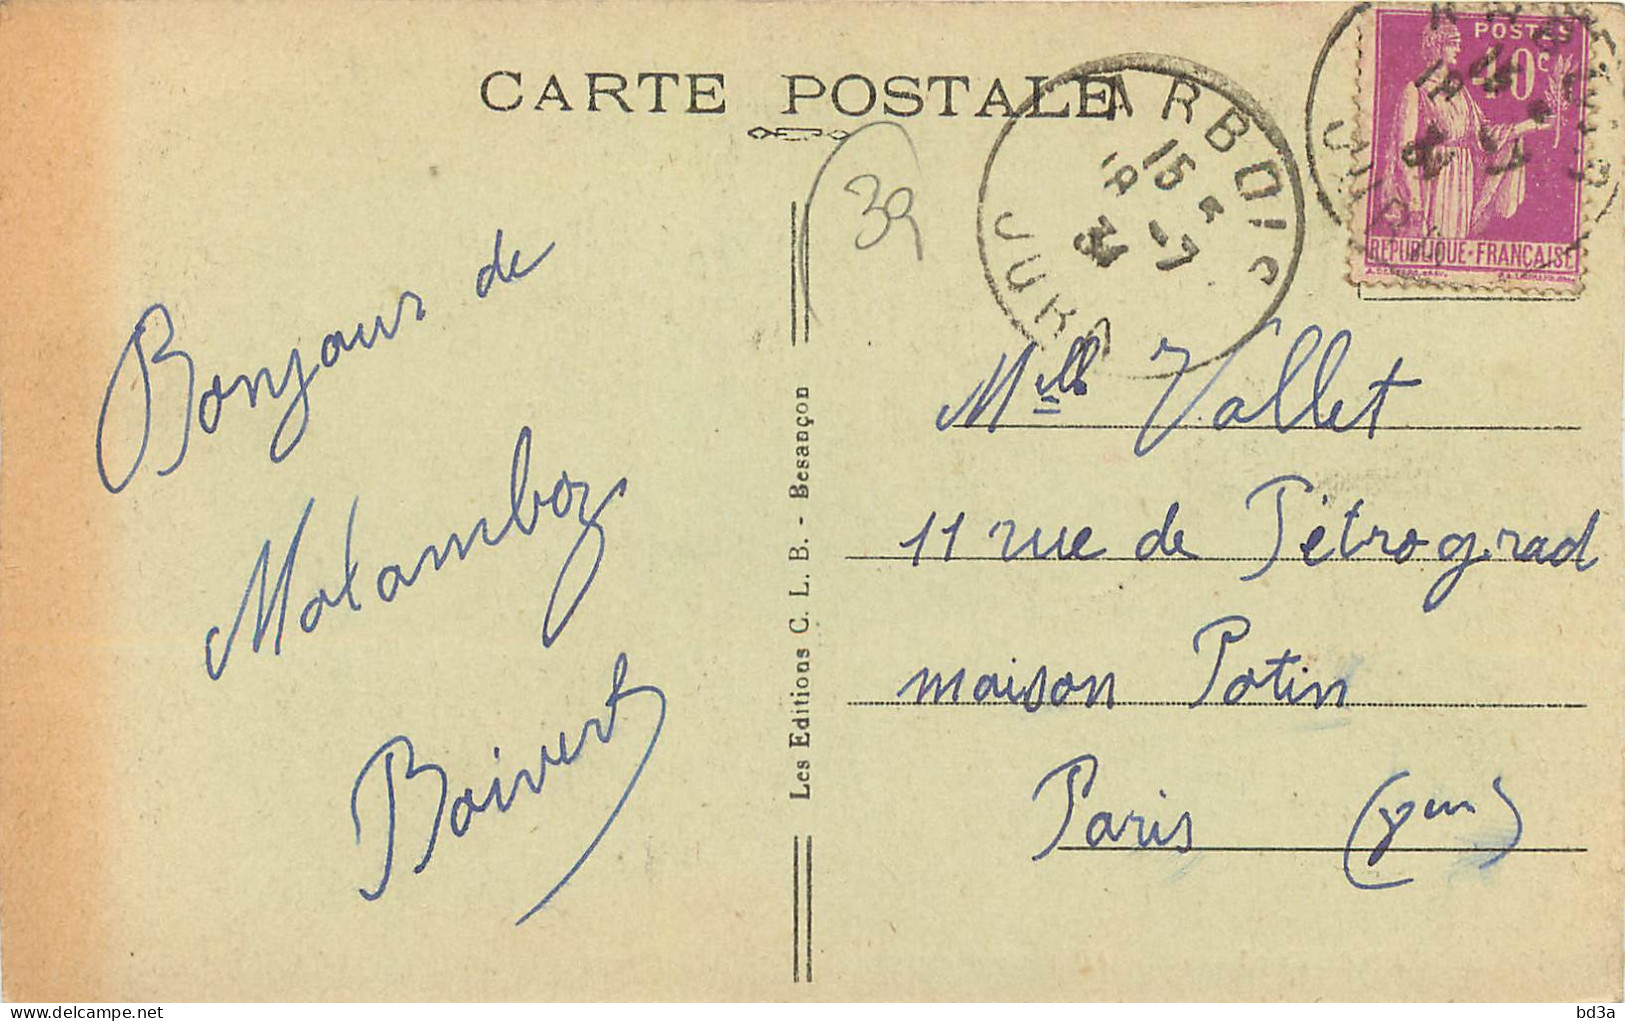 CARTE POSTALE
39
ARBOIS
15
18 -7
JURA
POSTES
40c
REPUBLIQUE-FRANÇAISE
Bonjour de
Malamboz
Boivert
Les Editions C. L. B. - Besançon
Mlle Vallet
11 rue de Pétrograd
maison Potin
Paris
delcampe.net
bd3a